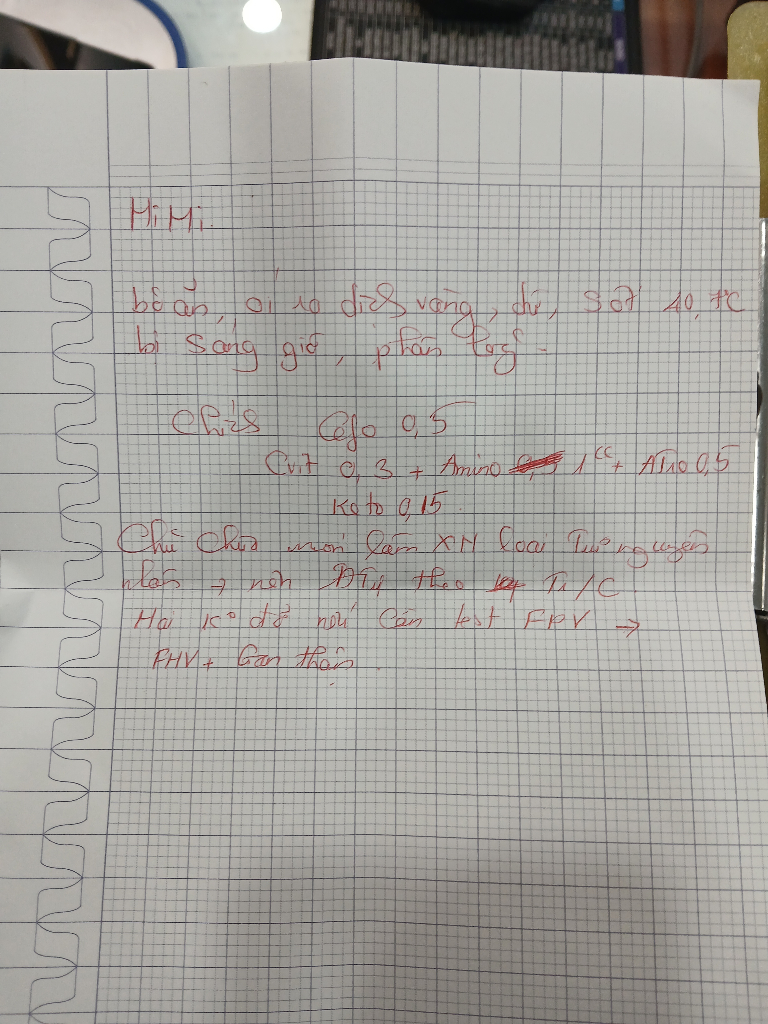 HiHi
bỏ ăn, ói ra dịch vàng, dữ, sốt 40,7°C
bị sáng giờ, phân lỏng.
Chích Cefo 0,5
Cvit 0,3 + Amino 1cc + Atro 0,5
Keto 0,15
Chủ chưa muốn làm XN loại Trừ nguyên
nhân → nên ĐTrị theo Tr/C
Hai K° đỡ nói cần test FPV →
FHV + Gan thận.